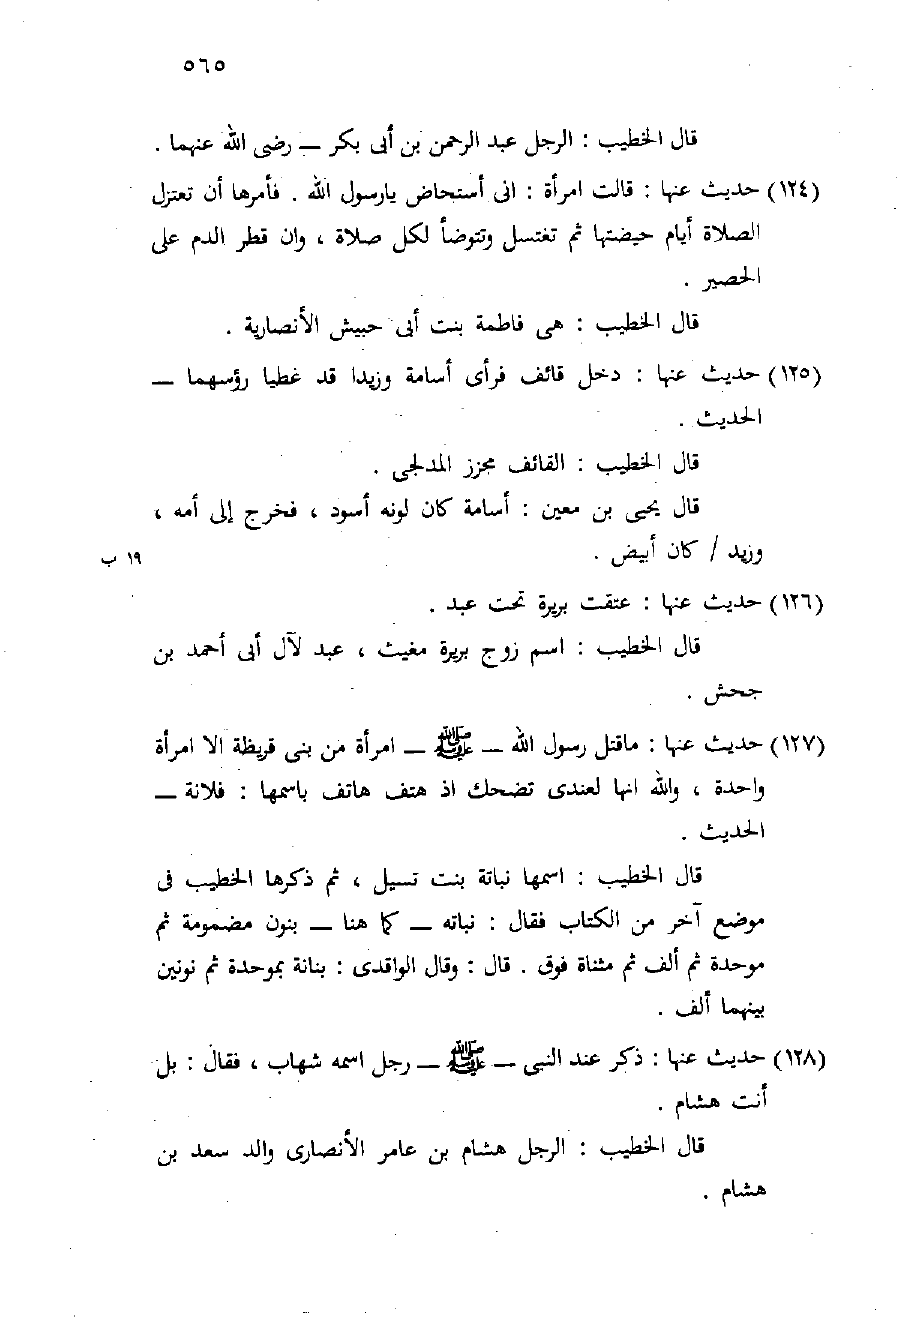 ٥٦٥
قال الخطيب : الرجل عبد الرحمن بن أبى بكر — رضى الله عنهما .
(١٢٤) حديث عنها : قالت امرأة : انى أستحاض يارسول الله . فأمرها أن تعتزل
الصلاة أيام حيضتها ثم تغتسل وتتوضأ لكل صلاة ، وان قطر الدم على
الحصير .
قال الخطيب : هى فاطمة بنت أبى حبيش الأنصارية .
(١٢٥) حديث عنها : دخل قائف فرأى أسامة وزيدا قد غطيا رؤسهما —
الحديث .
قال الخطيب : القائف مجزز المدلجى .
قال يحيى بن معين : أسامة كان لونه أسود ، فخرج إلى أمه ،
وزيد / كان أبيض . ١٩ ب
(١٢٦) حديث عنها : عتقت بريرة تحت عبد .
قال الخطيب : اسم زوج بريرة مغيث ، عبد لآل أبى أحمد بن
جحش .
(١٢٧) حديث عنها : ماقتل رسول الله — ﷺ — امرأة من بنى قريظة الا امرأة
واحدة ، والله انها لعندى تضحك اذ هتف هاتف باسمها : فلانة —
الحديث .
قال الخطيب : اسمها نباتة بنت تسيل ، ثم ذكرها الخطيب فى
موضع آخر من الكتاب فقال : نباته — كما هنا — بنون مضمومة ثم
موحدة ثم ألف ثم مثناة فوق . قال : وقال الواقدى : بنانة بموحدة ثم نونين
بينهما ألف .
(١٢٨) حديث عنها : ذكر عند النبى — ﷺ — رجل اسمه شهاب ، فقال : بل
أنت هشام .
قال الخطيب : الرجل هشام بن عامر الأنصارى والد سعد بن
هشام .